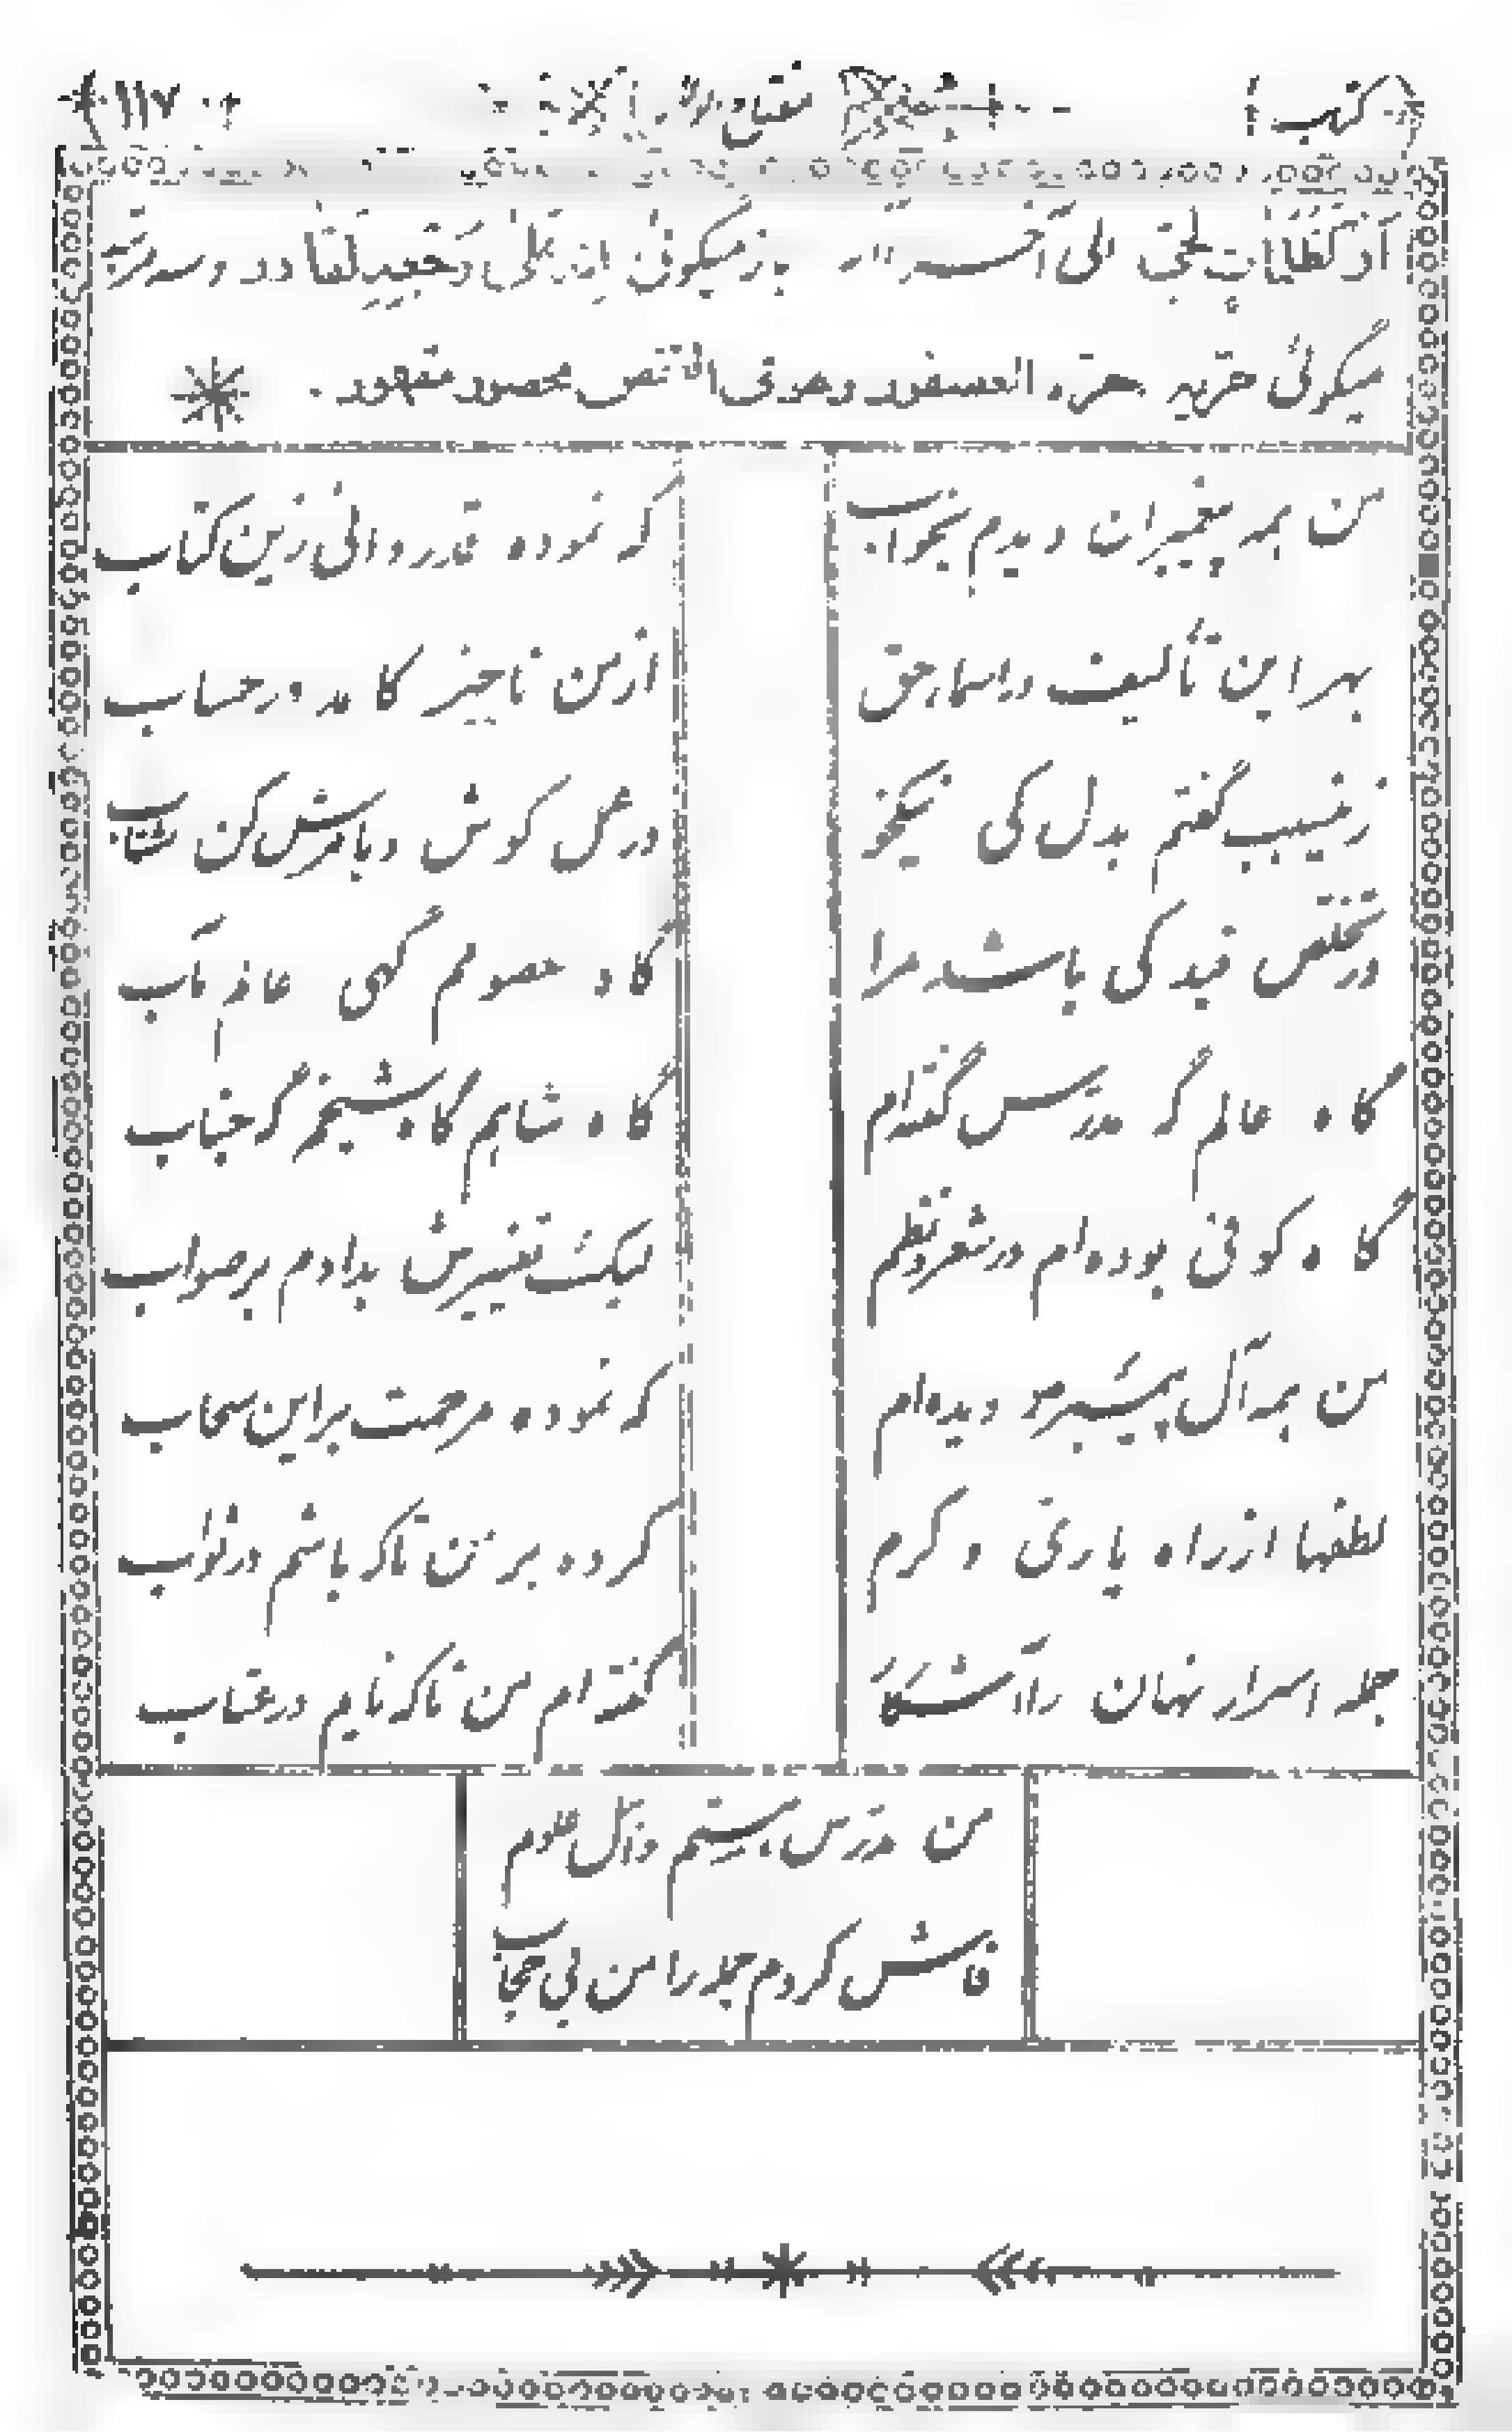 کتب مفتاح ۱۱۷
أو كظلمات لجی الی آخر بازمیگوئی در و سه مرتبه
میگوئی العصفور وهو فی القفص محصور مقهور
من همه پیغمبران دیدم بخواب که نموده قدردانی زین کتاب
بهر این تألیف در اسماء حق از من ناچیز کامد در حساب
زغیب گفتم بدل کی نیکخو در عمل کوش و بامرش کن شتاب
در تخلص قید کی باشد مرا گاه معصومم گهی عالم مآب
گاه عالم گر مدرس گفته‌ام گاه شاهم گاه شیخم گر جناب
گاه کوفی بوده‌ام در شعر و نظم لیک تغییرش بدادم بر صواب
من همه آل پیمبر دیده‌ام که نموده مرحمت بر این سحاب
لطفها از راه یاری و کرم کرده بر من تا که باشم در ثواب
جمله اسرار نهان را آشکار گفته‌ام من تا که نایم در عتاب
من مدرس هستم علوم
فاش کردم جمله را من بی حجاب